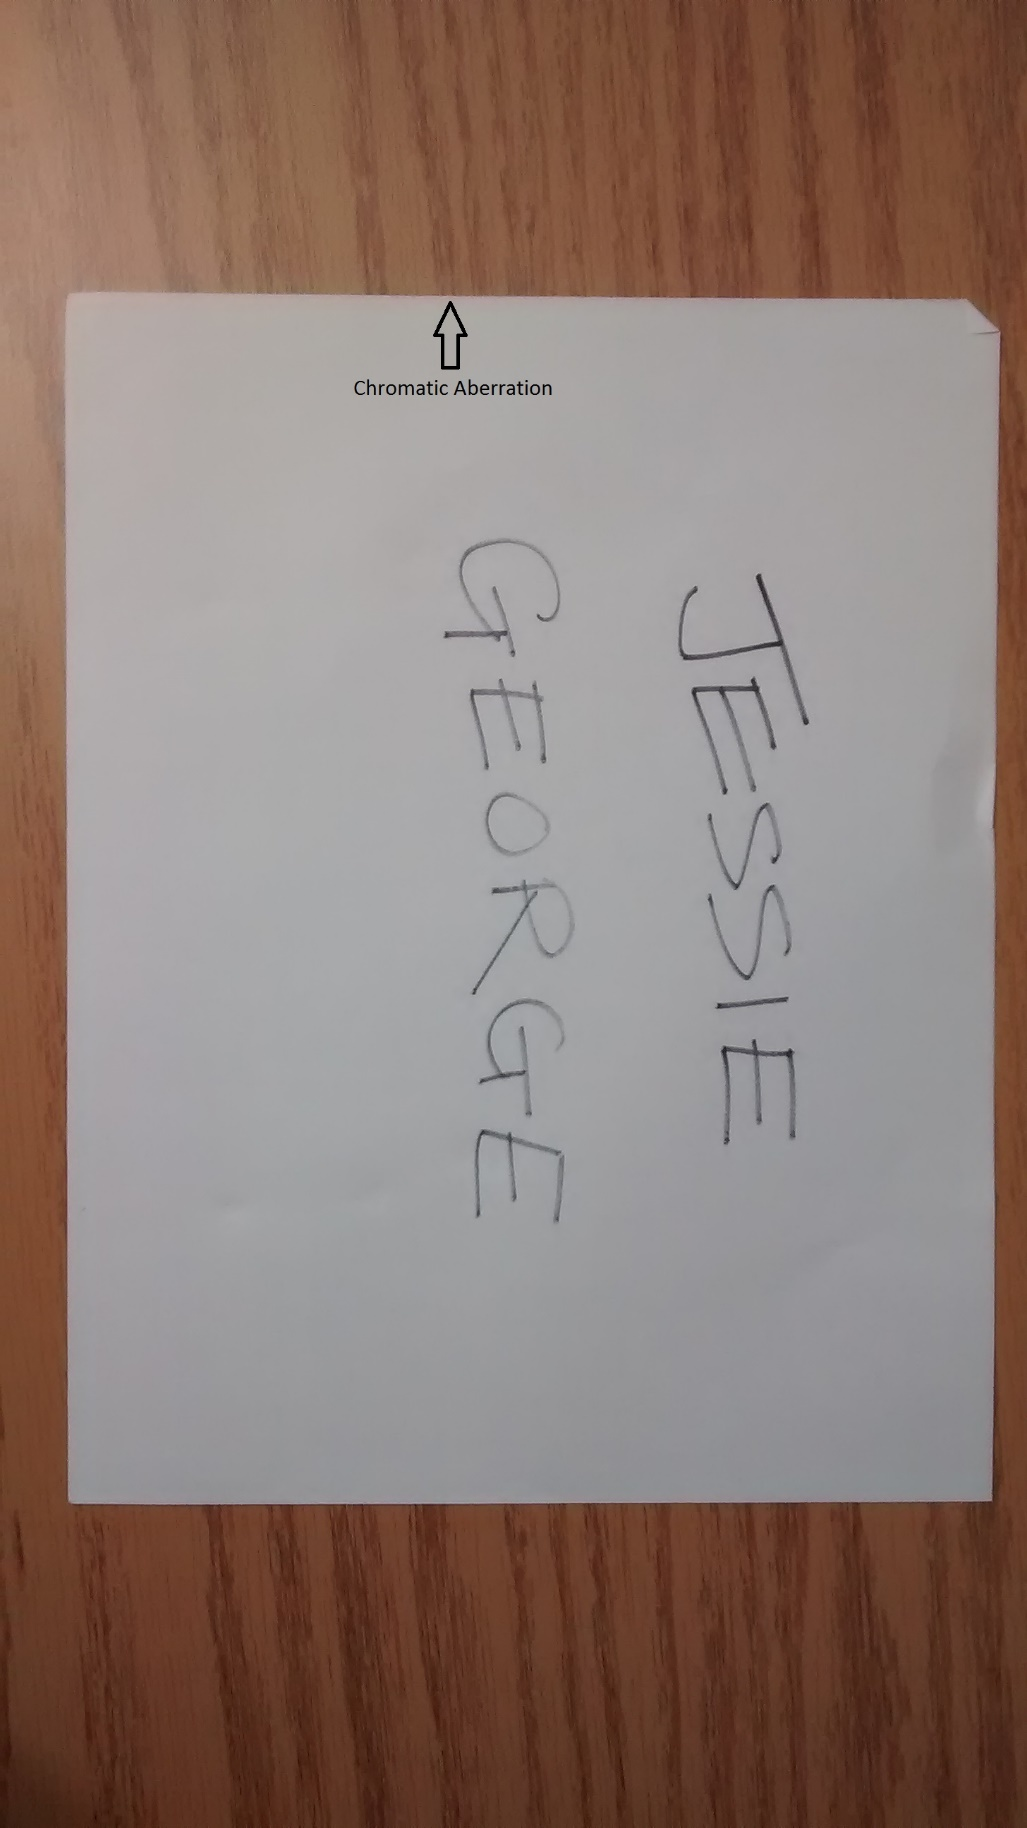 Chromatic Aberration
JESSIE
GEORGE